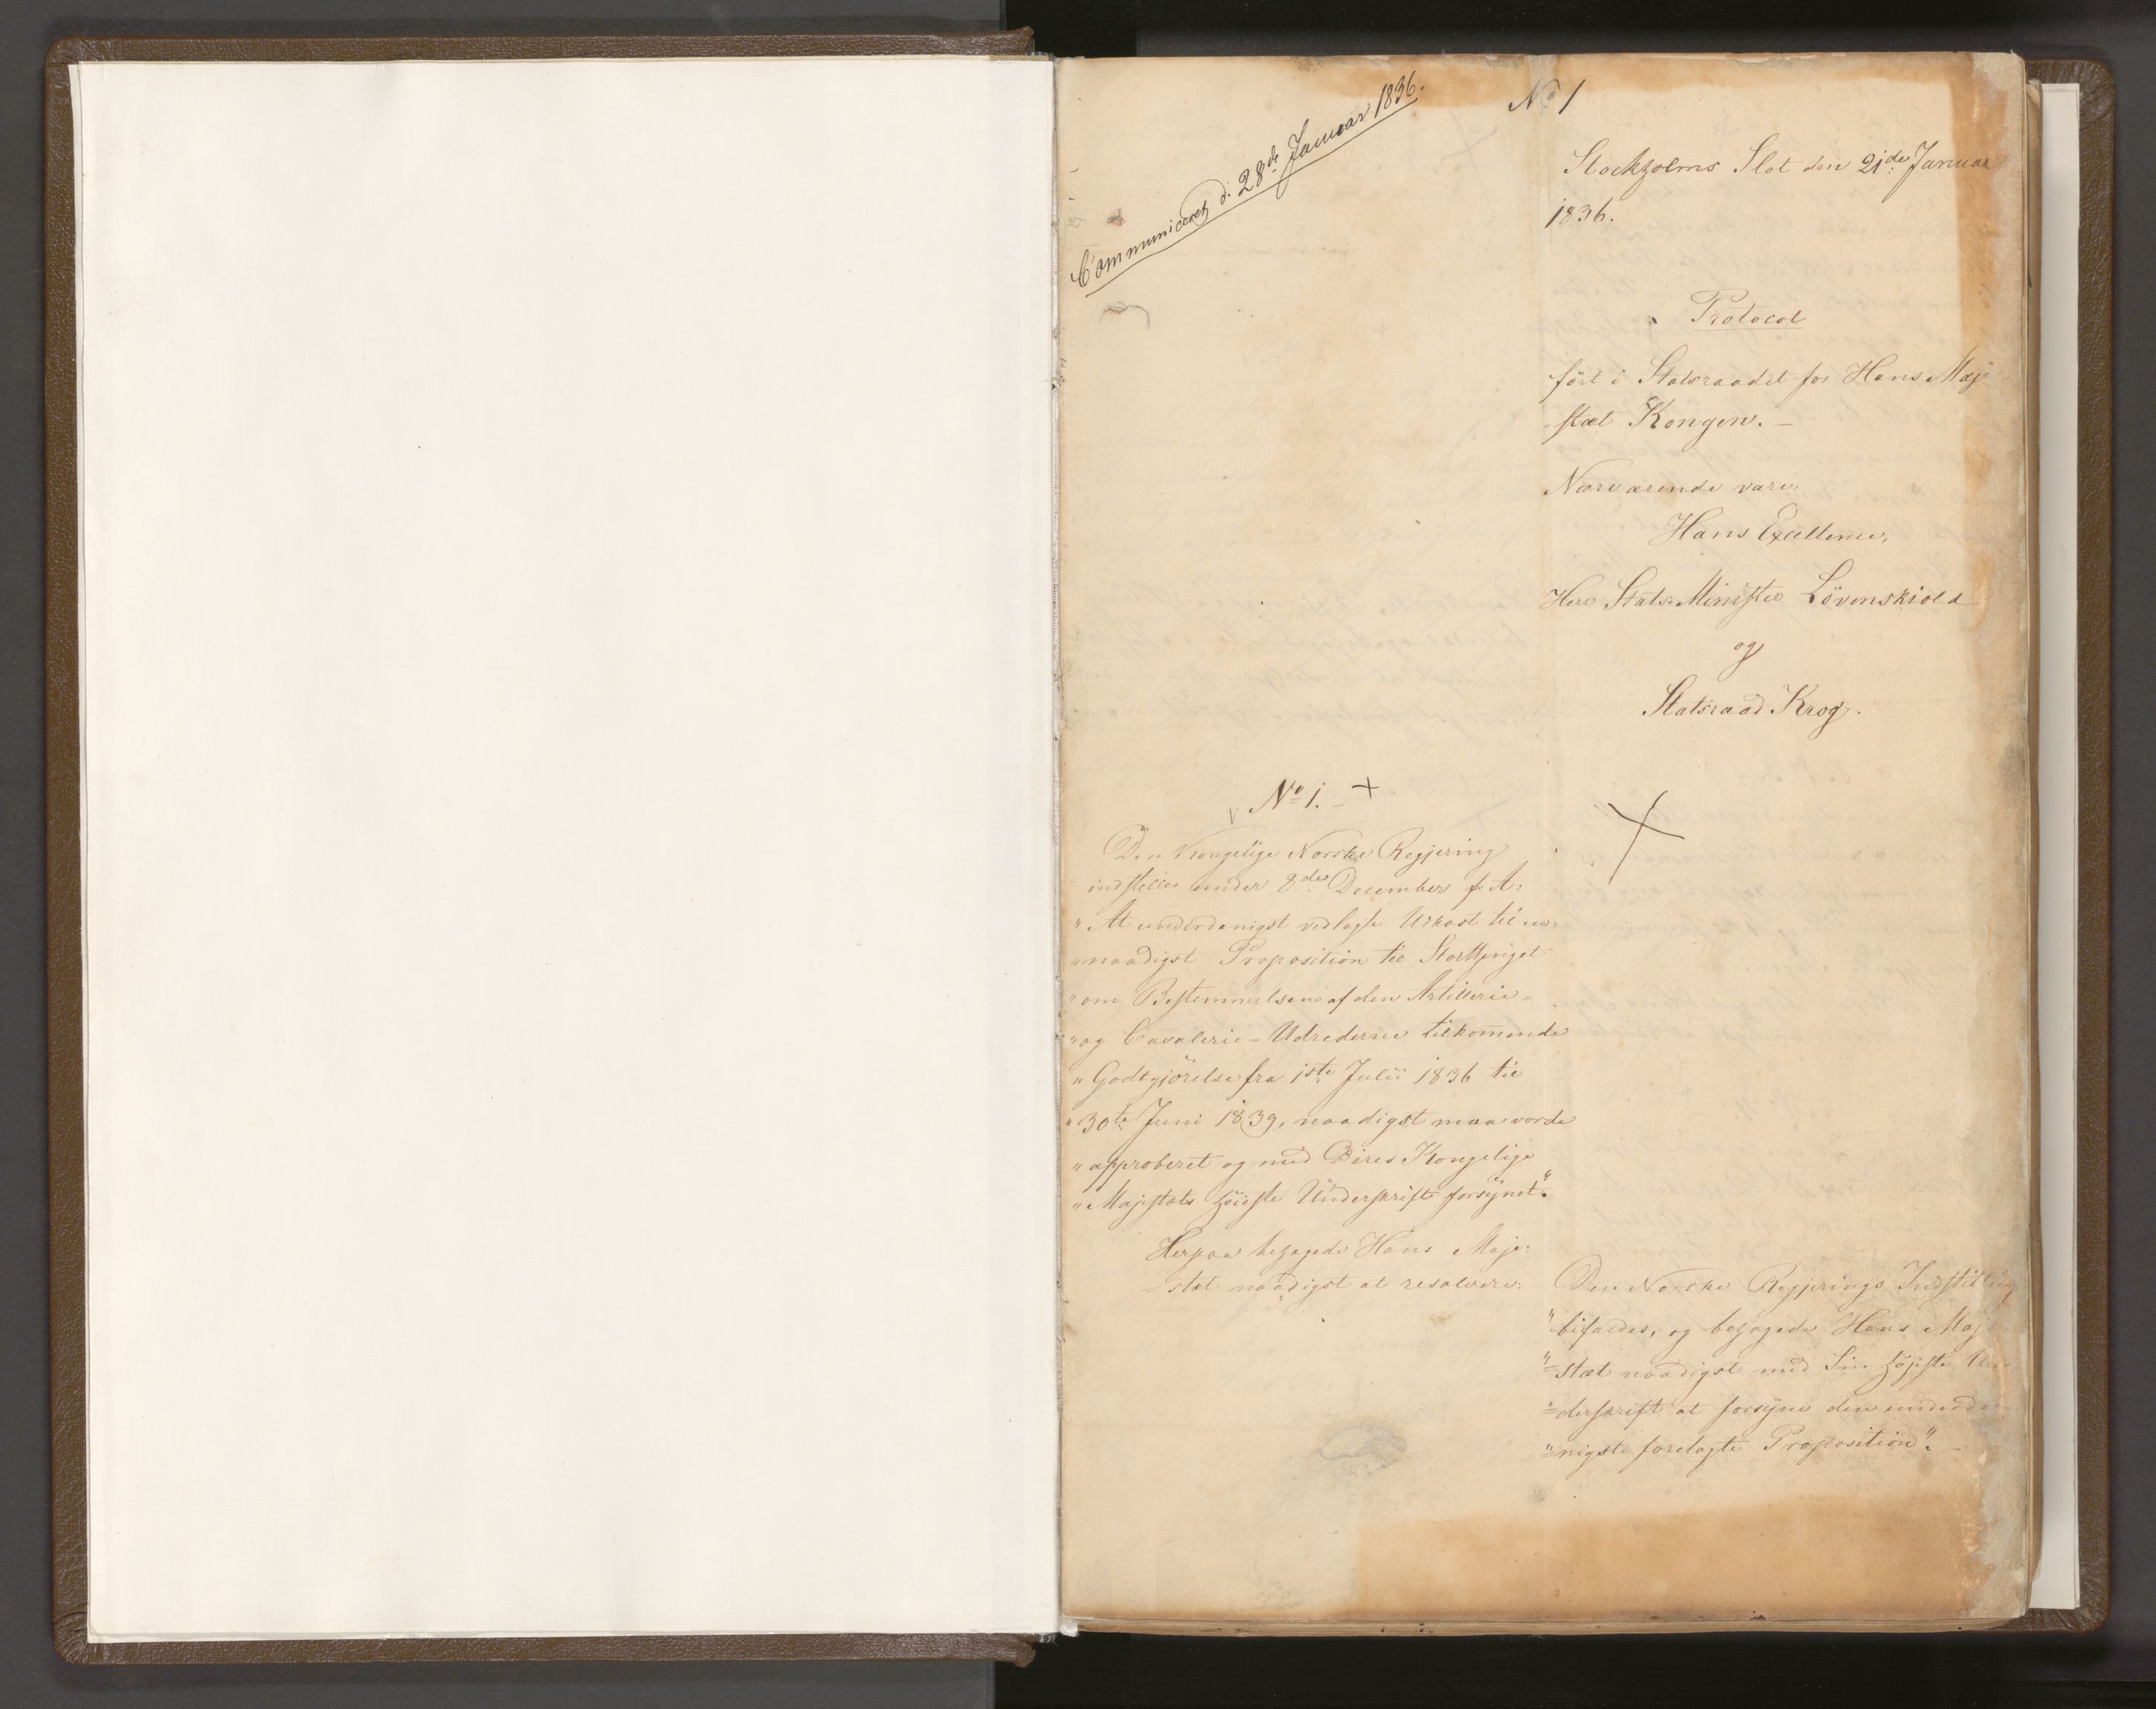 Communiceret d: 28de Januar 1836.
No 1
Stockholms Slot den 21de Januar
1836.
Protocol
ført i Statsraadet for Hans Maj
stæt Kongen. –
Nærværende vare:
Hans Excellence,
Herr Stats-Minister Løvenskiold
og
Statsraad Krog.
No 1. – +
Den Kongelige Norske Regjering
indstiller under 8de December f. A:
" At underdanigst vedlagte Udkast til en
" naadigst Proposition til Storthinget
" om Bestemmelsen af den Artillerie-
" og Cavalerie-Udrederne tilkommende
" Godtgjørelse fra 1ste Julii 1836 til
" 30te Juni 1839, naadigst maa vorde
" approberet og med Deres Kongelige
" Majestæts høieste Underskrift forsynet".
Herpaa behagede Hans Maje-
-stæt naadigst at resolvere:
Den Norske Regjerings Indstilling
" bifaldes, og behagede Hans Maj
"-stæt naadigst med Sin høieste Un
"-derskrift at forsyne den underda
"-nigst forelagte Proposition". –